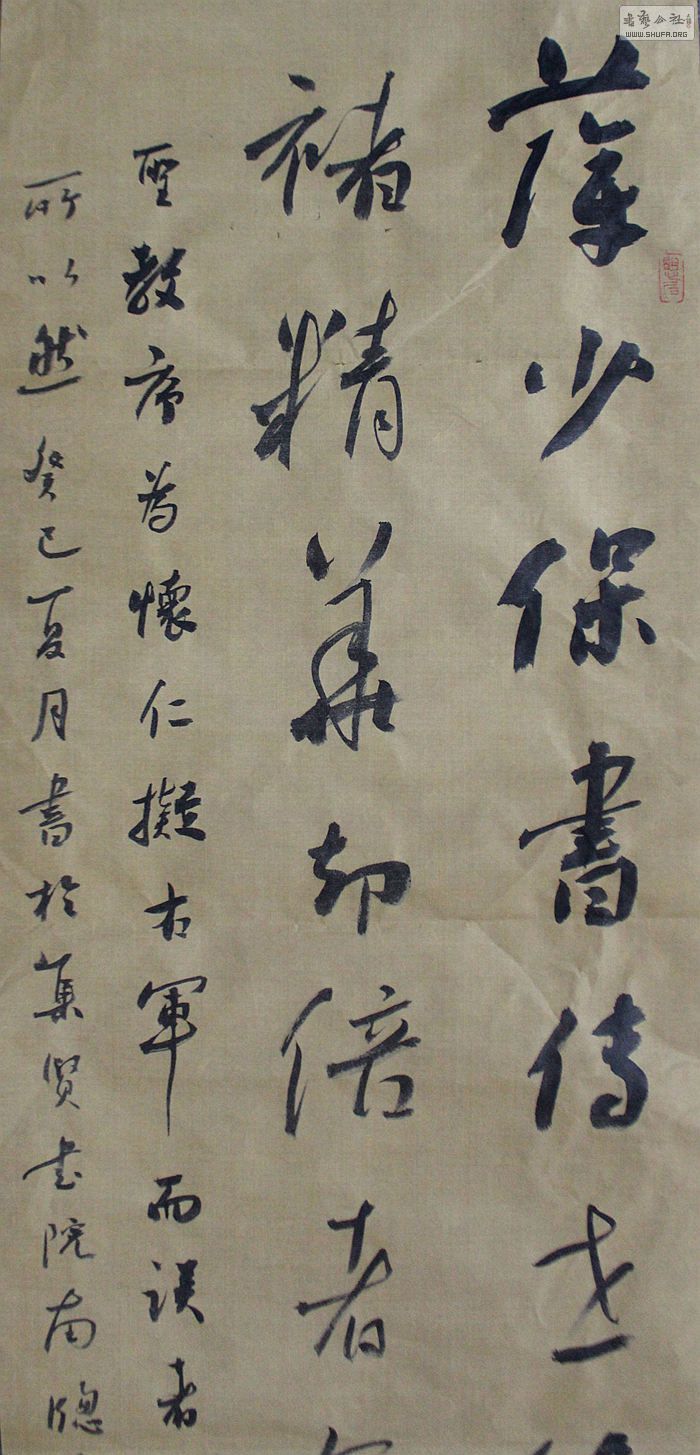 薛少保書傳世
褚精華却倍者
聖教序為懷仁擬右軍而誤者
所以然癸巳夏月書於集賢書院南牕
書法公社
WWW.SHUFA.ORG